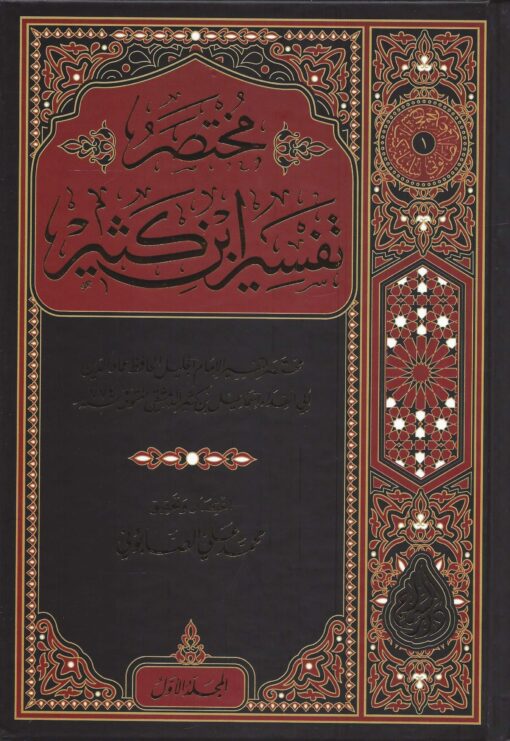 مُختَصَرُ
تَفسِيرِ ابْنِ كَثِير
مختصر تفسير الإمام الجليل الحافظ عماد الدين
أبي الفداء إسماعيل بن كثير الدمشقي المتوفى سنة
اختصار وتحقيق
محمد علي الصابوني
المجلد الأول
١